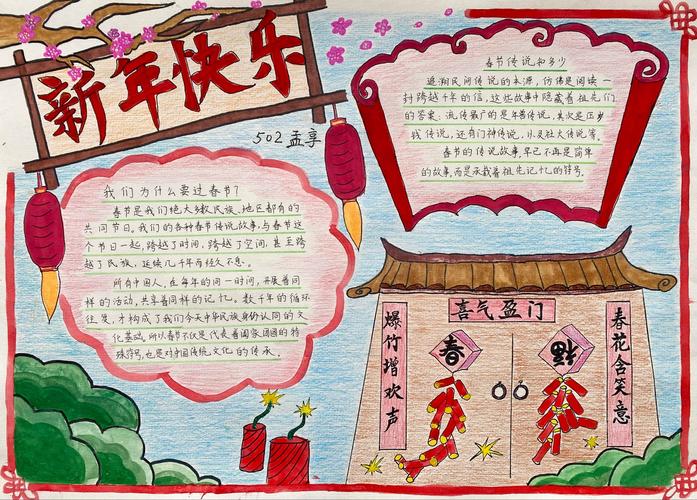 新年快乐
502 孟享
春节传说知多少
追溯民间传说的来源,仿佛是阅读一
封跨越千年的信,这些故事中隐藏着祖先们
的答案。流传最广的是年兽传说,其次是压岁
钱传说,还有门神传说,以及社火传说等。
春节的传说故事,早已不再是简单
的故事,而是承载着祖先记忆的符号。
我们为什么要过春节?
春节是我们绝大多数民族、地区都有的
共同节日。我们的各种春节传说故事,与春节这
个节日一起,跨越了时间,跨越了空间,甚至跨
越了民族,延续几千年而经久不息。
所有中国人,在每年的同一时间,开展着同
样的活动,共享着同样的记忆。数千年的循环
往复,才构成了我们今天中华民族身份认同的文
化基础。所以春节不仅是代表着阖家团圆的特
殊符号,也是对中国传统文化的传承。
喜气盈门
爆竹增欢声
春
福
春花含笑意